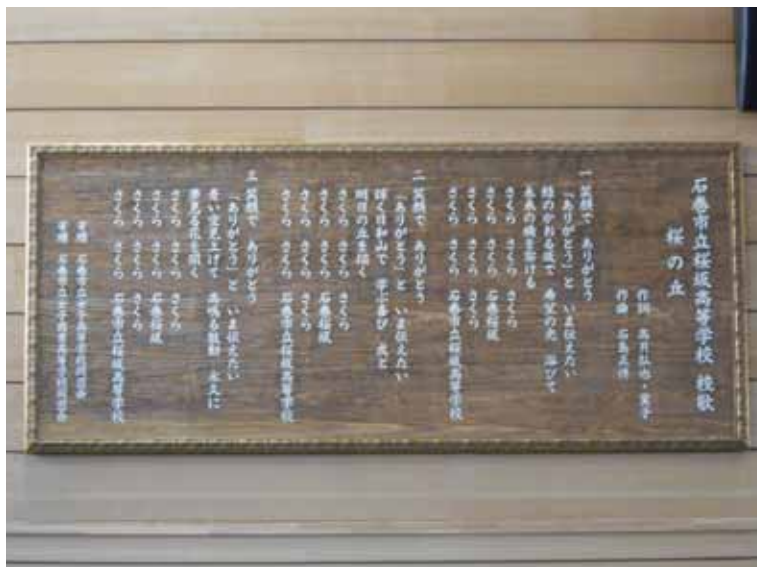 石巻市立桜坂高等学校 校歌
桜の丘
作詞
作曲 石島正博
一 笑顔で ありがとう
「ありがとう」と いま伝えたい
桜のかおる風で 希望の光 浴びて
未来の橋を架ける
さくら さくら さくら
さくら さくら 桜坂
さくら さくら さくら
さくら さくら 石巻市立桜坂高等学校
二 笑顔で ありがとう
「ありがとう」と いま伝えたい
輝く日和山で 学ぶ喜び 友と
明日の丘を描く
さくら さくら さくら
さくら さくら 石巻桜坂
さくら さくら さくら
さくら さくら 石巻市立桜坂高等学校
三 笑顔で ありがとう
「ありがとう」と いま伝えたい
青い空見上げて 高鳴る鼓動 永久に
夢見る扉を開く
さくら さくら さくら
さくら さくら 石巻桜坂
さくら さくら さくら
さくら さくら 石巻市立桜坂高等学校
寄贈
寄贈